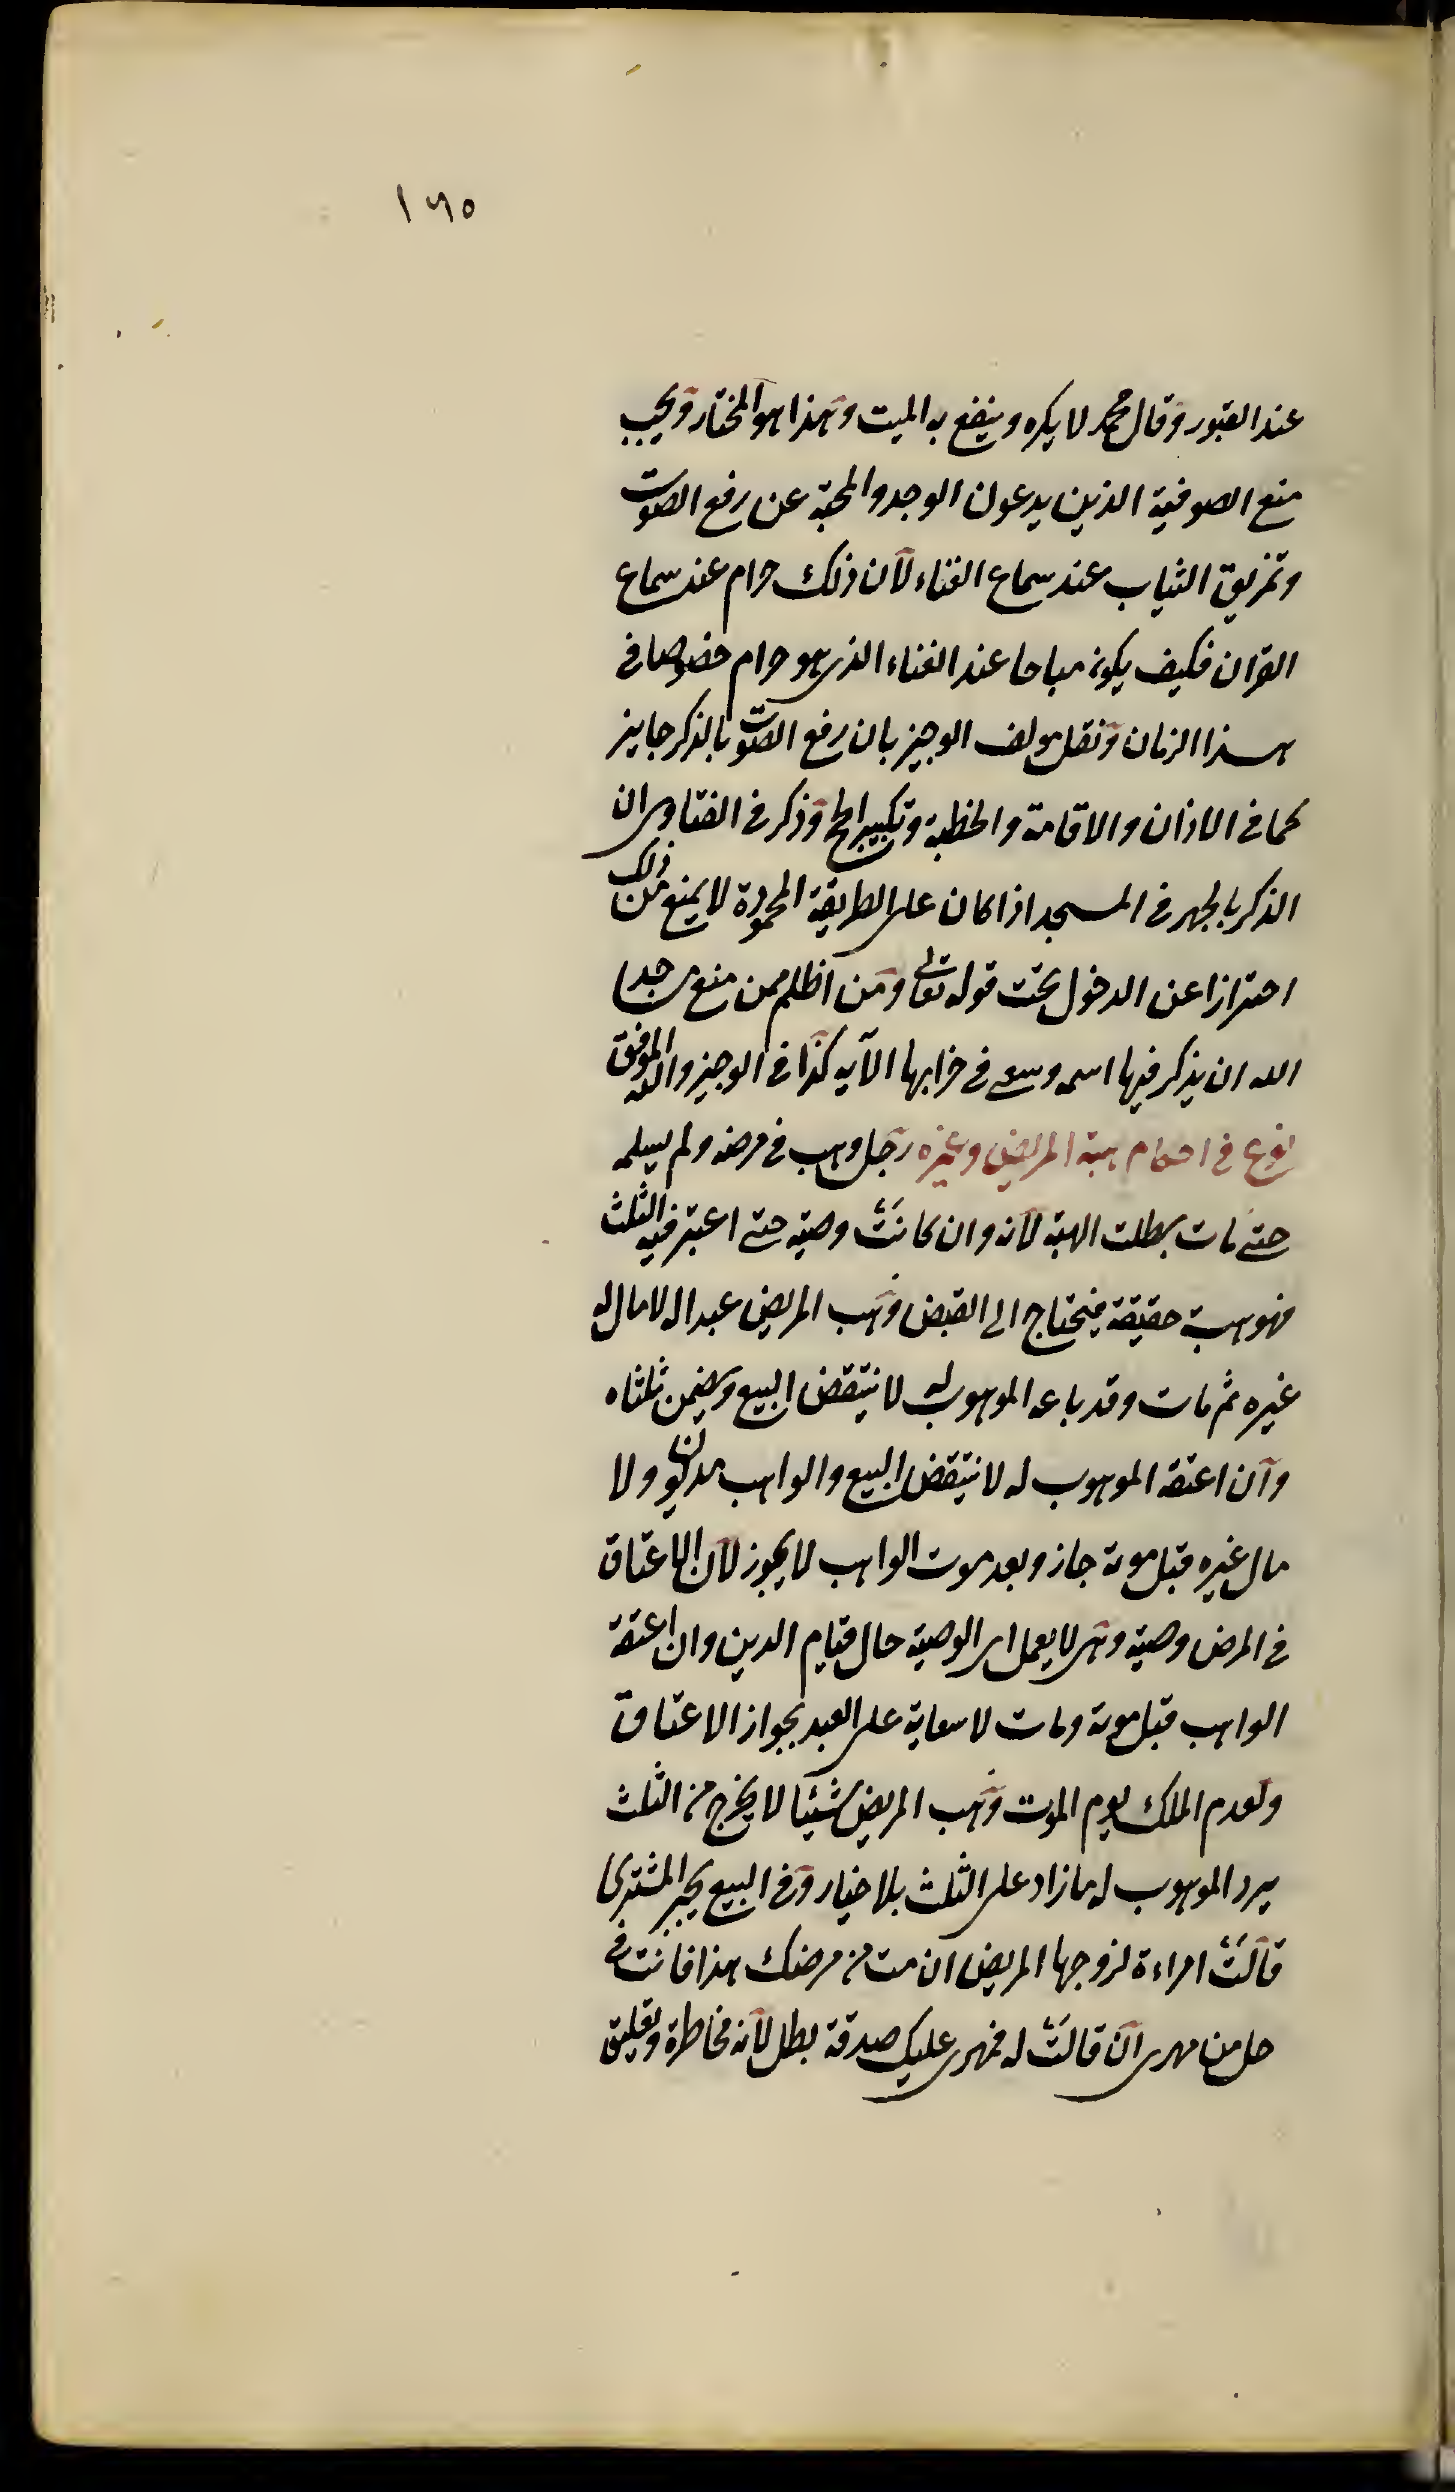 ١٦٥
عند القبور وقال محمد لا يكره وينفع به الميت وهذا هو المختار ويجب
منع الصوفية الذين يدعون الوجد والمحبة عن رفع الصوت
وتمزيق الثياب عند سماع الغناء لان ذلك حرام عند سماع
القران فكيف يكون مباحا عند الغناء الذى هو حرام خصوصا فى
هذا الزمان ونقل مولف الوجيز بان رفع الصوت بالذكر جايز
كما فى الاذان والاقامة والخطبة وتكبير الحج وذكر فى الفتاوى ان
الذكر بالجهر فى المسجد اذا كان على الطريقة المحمودة لا يمنع من ذلك
احترازا عن الدخول تحت قوله تعالى ومن اظلم ممن منع مساجد
الله ان يذكر فيها اسمه وسعى فى خرابها الآيه كذا فى الوجيز والله الموفق
نوع فى احكام هبة المريض وغيره رجل وهب فى مرضه ولم يسلمه
حتى مات بطلت الهبة لانه وان كانت وصية حتى اعتبر فيه الثلث
فهو هبة حقيقة فيحتاج الى القبض وهب المريض عبدا له لا مال له
غيره ثم مات وقد باعه الموهوب له لا ينتقض البيع ويضمن ثلثاه
وان اعتقه الموهوب له لا ينتقض البيع والواهب مديون ولا
مال غيره قبل موته جاز وبعد موت الواهب لا يجوز لان الاعتاق
فى المرض وصية وهى لا يعمل اى الوصية حال قيام الدين وان اعتقه
الواهب قبل موته ومات لا سعاية على العبد بجواز الاعتاق
ولعدم الملك يوم الموت وهب المريض شيئا لا يخرج من الثلث
يرد الموهوب له ما زاد على الثلث بلا خيار وفى البيع يخير المشترى
قالت امراءة لزوجها المريض ان مت من مرضك هذا فانت فى
حل من مهرى ان قالت له فمهرى عليك صدقة بطل لانه مخاطرة وتعليق